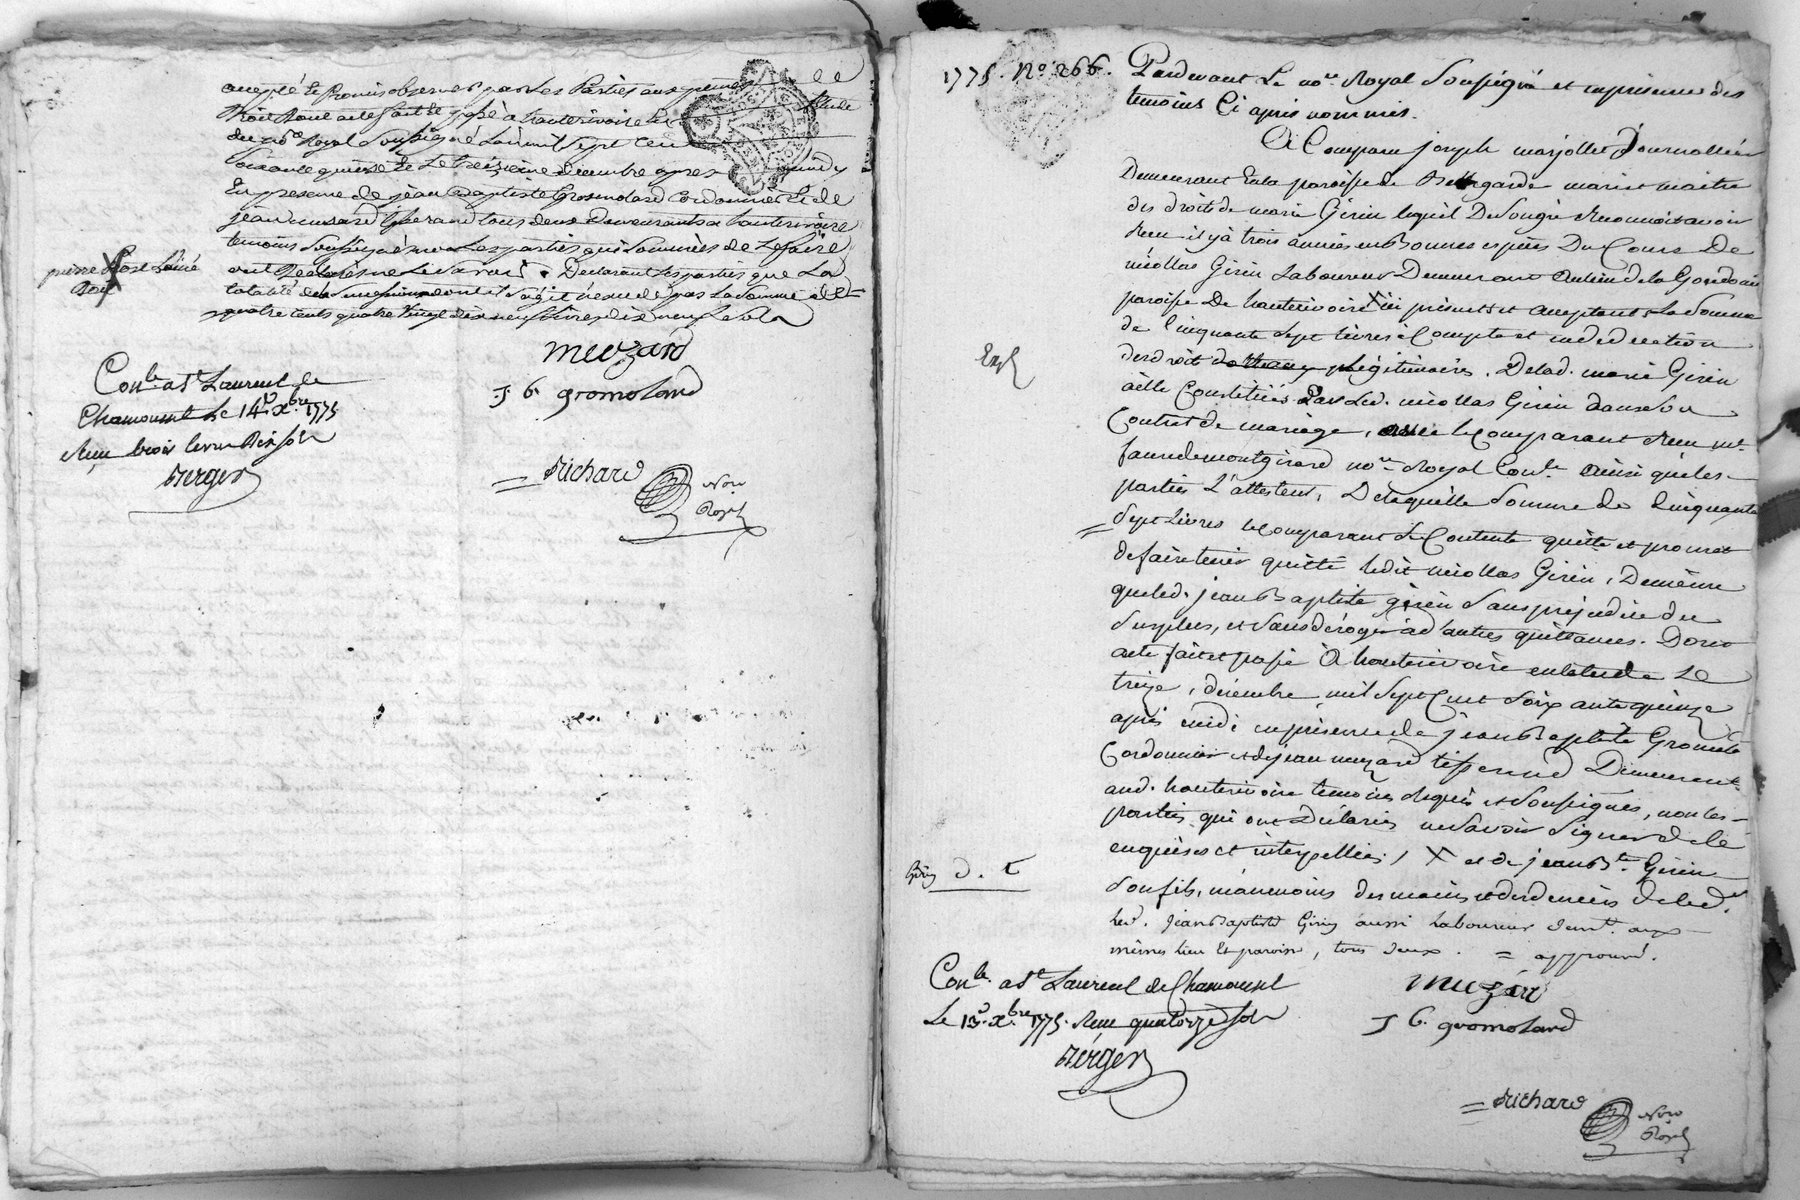 accepté et promis observer par les parties aux peines
droit dont acte fait et passé à hauterivoire
du no.re Royal soussigné L'an mil sept cent
soixante quinze et Le treizième décembre apres midy
En presence de jean baptiste Gromolard Cordonnier et de
jean muzard tisserand tous deux demeurants a hauterivoire
temoins soussignés non Les parties qui sommées de Le faire
ont declaré ne Le savoir. Declarant Les parties que La
totalité de la succession dont il s'agit n'excede pas La somme de
quatre cents quatre vingt dix neuf Livres dix neuf sols
pierre
muzard
J b. gromoland
Con.lé a S.t Laurent de
Chamousset Le 14.e X.bre 1775
Reçu trois livres dix sols
Berger
Richard
No.re
Royal
1775. No. 266.
Pardevant Le no.re Royal soussigné et en présence des
temoins Ci apres nommés.
A Comparu joseph marjollet Journallier
Demeurant En la paroisse de Bellegarde mari et maitre
des droits de marie Girin lequel De son gré Reconnoit avoir
Reçu il y à trois années en Bonnes espèces Du Cours De
nicollas Girin Laboureur Demeurant au lieu de la
paroisse De hauterivoire X ici présents et acceptants La Somme
de Cinquante sept livres à Compte et en déduction
des droits légitimaires. De lad. marie Girin
à elle Constitués Par Led. nicollas Girin dans son
Contrat de mariage, avec le Comparant Reçu m.e
faure de montgirard no.re Royal Con.lé ainsi que les
parties L'attestent, De laquelle Somme de Cinquante
Sept Livres le Comparant Se Contente quitte et promet
de faire tenir quitte ledit nicollas Girin, De même
que led. jean Baptiste girin Sans préjudice du
Surplus, et sans déroger à d'autres quittances. Dont
acte fait et passé à hauterivoire en l'étude Le
treize, décembre mil Sept Cent Soixante quinze
après midi en présence de jean Baptiste Gromolard
Cordonnier et de jean muzard tisserand Demeurant
aud. hauterivoire temoins Requis et Soussignés, non les
parties qui ont déclaré ne Savoir Signer de ce
enquises et interpellées, X et de jean B.te Girin
Son fils, néanmoins des mains et des deniers de led.
Led. Jean Baptiste Girin aussi Laboureur dem.t aux
mêmes lieu et paroisse, tous deux. = approuvé.
Con.lé a S.t Laurent de Chamousset
Le 13.e X.bre 1775. Reçu quatorze Sols
Berger
muzard
J b. gromoland
Richard
No.re
Royal